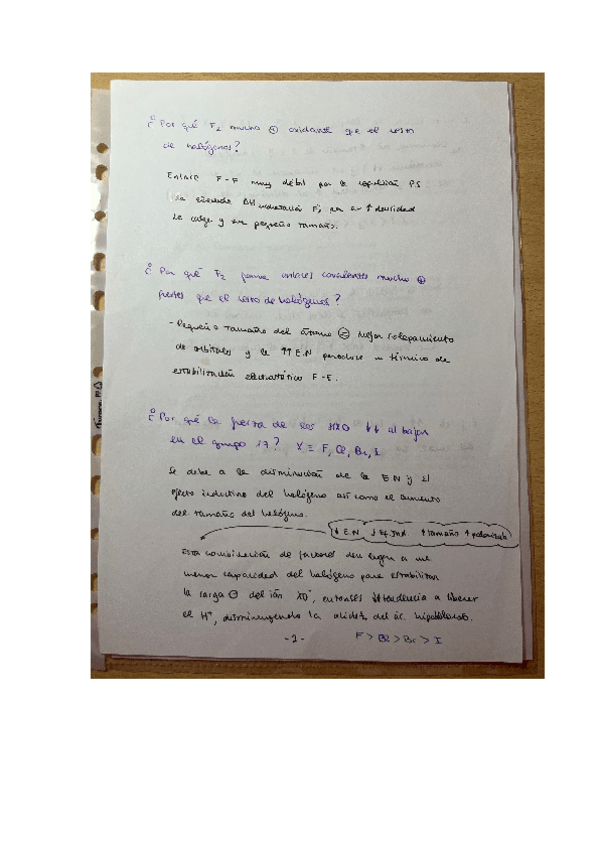 ¿Por qué F2 mucho ⊕ oxidante que el resto
de halógenos?
Enlace F-F muy débil por la repulsión PS
se elevada ΔH hidratación F⁻, por su ↑ densidad
de carga y su pequeño tamaño.
¿Por qué F2 forma enlaces covalentes mucho ⊕
fuertes que el resto de halógenos?
- Pequeño tamaño del átomo ⊜ mejor solapamiento
de orbitales y la ↑↑ E.N produce un término de
estabilización electrostático F-E.
¿Por qué la fuerza de los HXO ↓↓ al bajar
en el grupo 17? X ≡ F, Cl, Br, I
Se debe a la disminución de la E N y el
efecto inductivo del halógeno así como el aumento
del tamaño del halógeno.
↓ E.N ↓ Ef. Ind ↑ tamaño ↑ polarizab
Esta combinación de factores dan lugar a una
menor capacidad del halógeno para estabilizar
la carga ⊖ del ión XO⁻, entonces tendencia a liberar
el H⁺, disminuyendo la acidez del ác. hipohaloso.
-2- F > Cl > Br > I